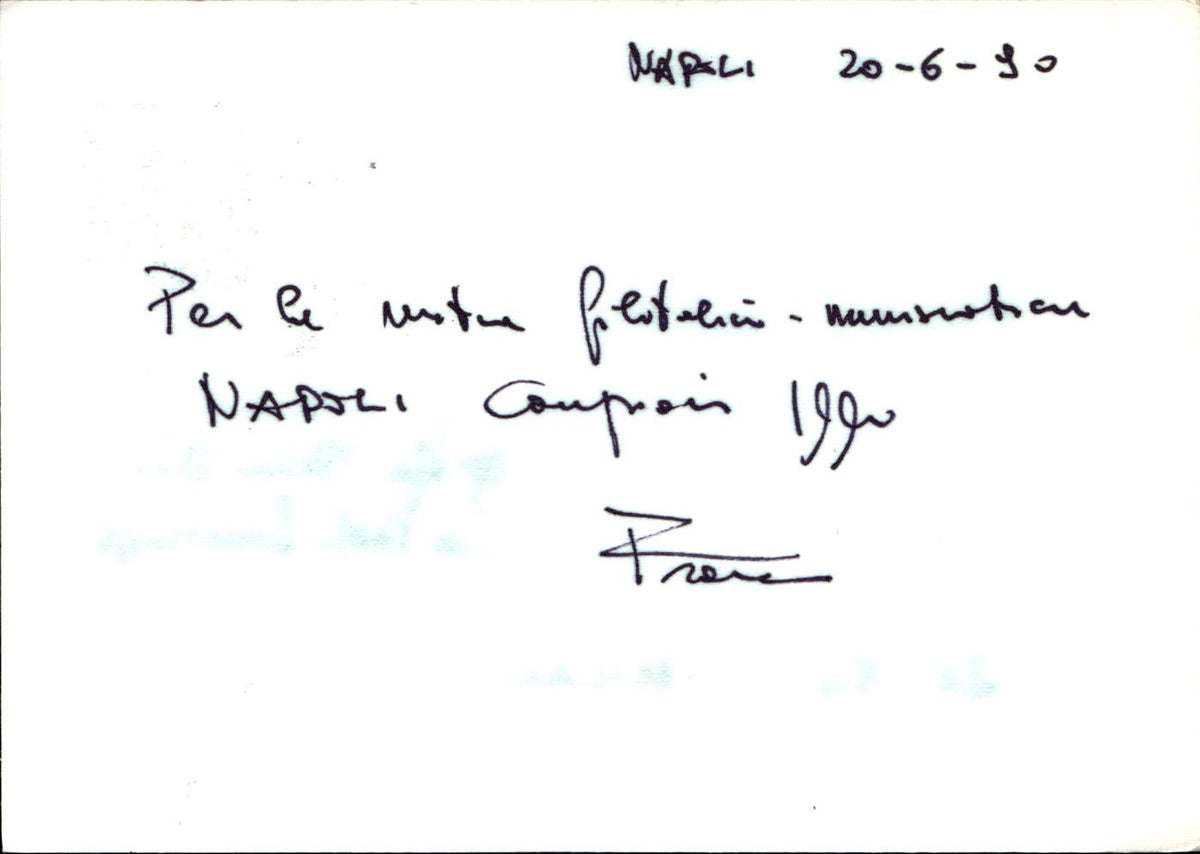 NAPOLI 20-6-90
Per la mostra filatelica-numismatica
NAPOLI Campione 1990
Franco